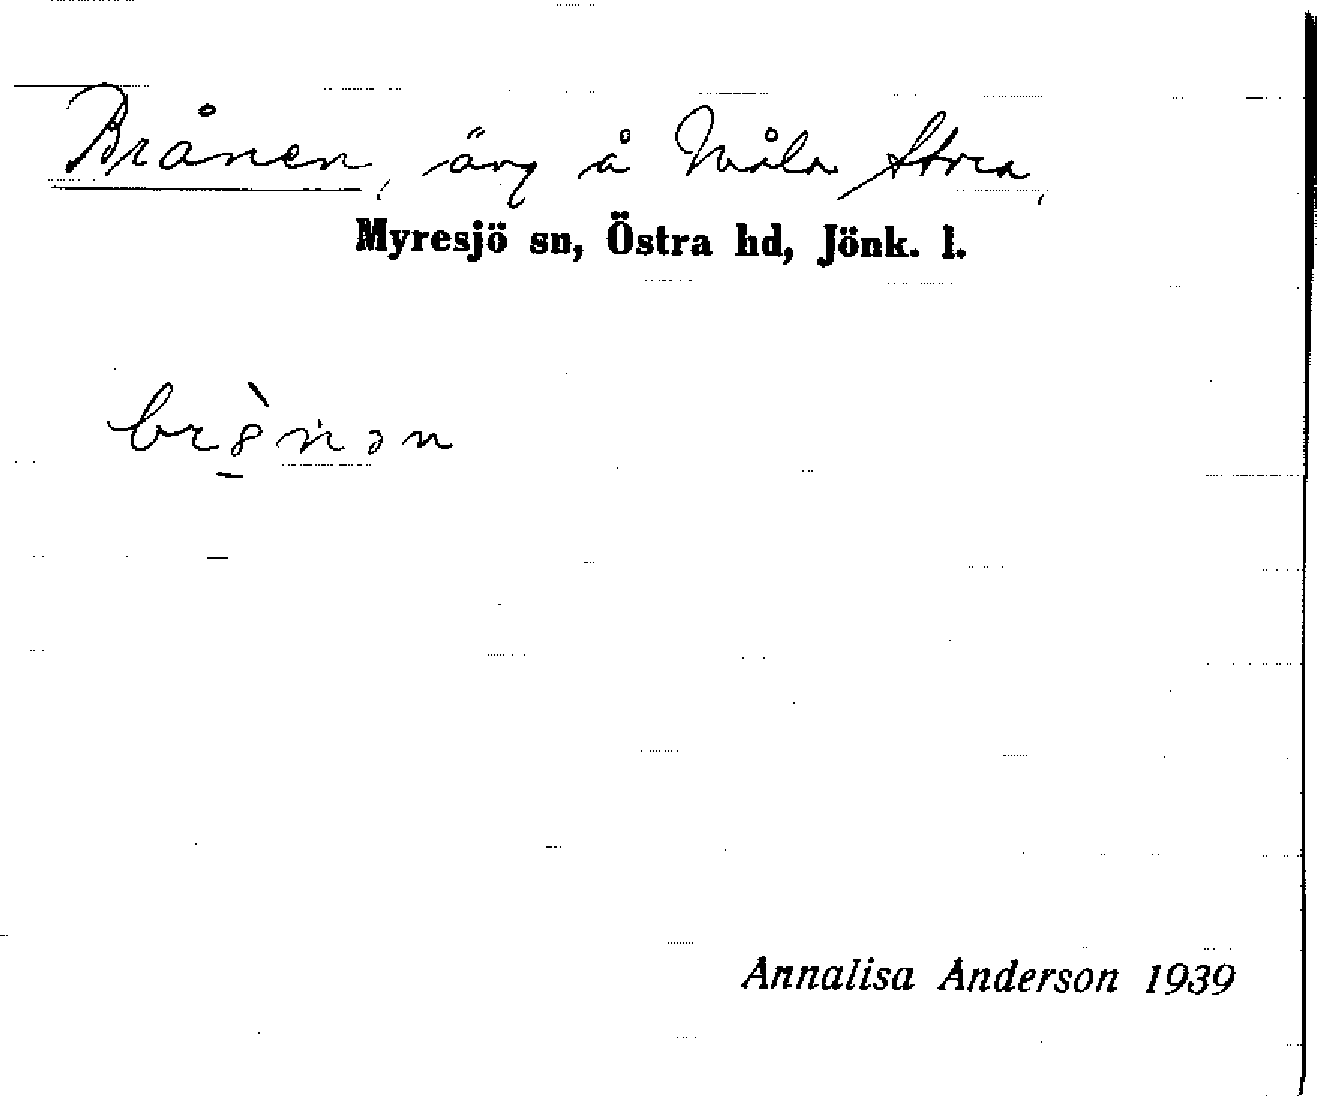 Brånen, äng å Måla Stora,
Myresjö sn, Östra hd, Jönk. l.
Annalisa Anderson 1939